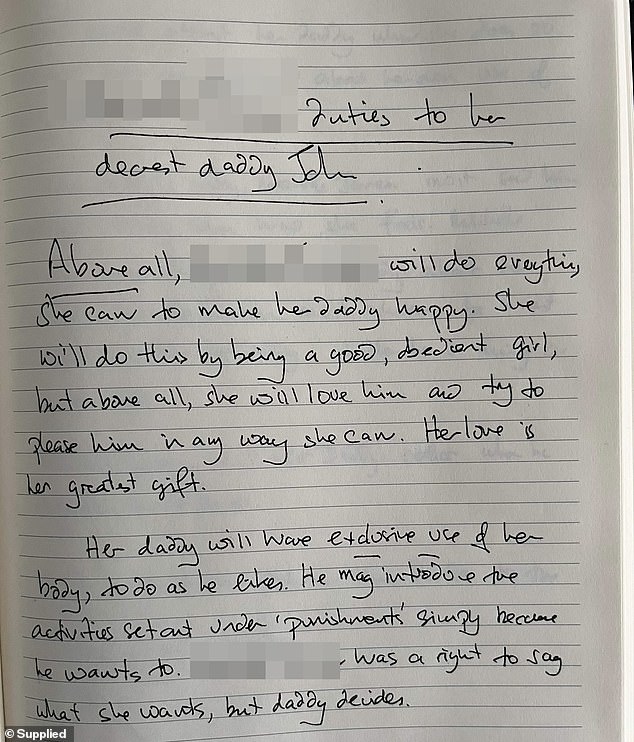 Duties to her
dearest daddy John
Above all, will do everything
she can to make her daddy happy. She
will do this by being a good, obedient girl,
but above all, she will love him and try to
please him in any way she can. Her love is
her greatest gift.
Her daddy will have exclusive use of her
body, to do as he likes. He may introduce the
activities set out under 'punishments' simply because
he wants to. has a right to say
what she wants, but daddy decides.
© Supplied